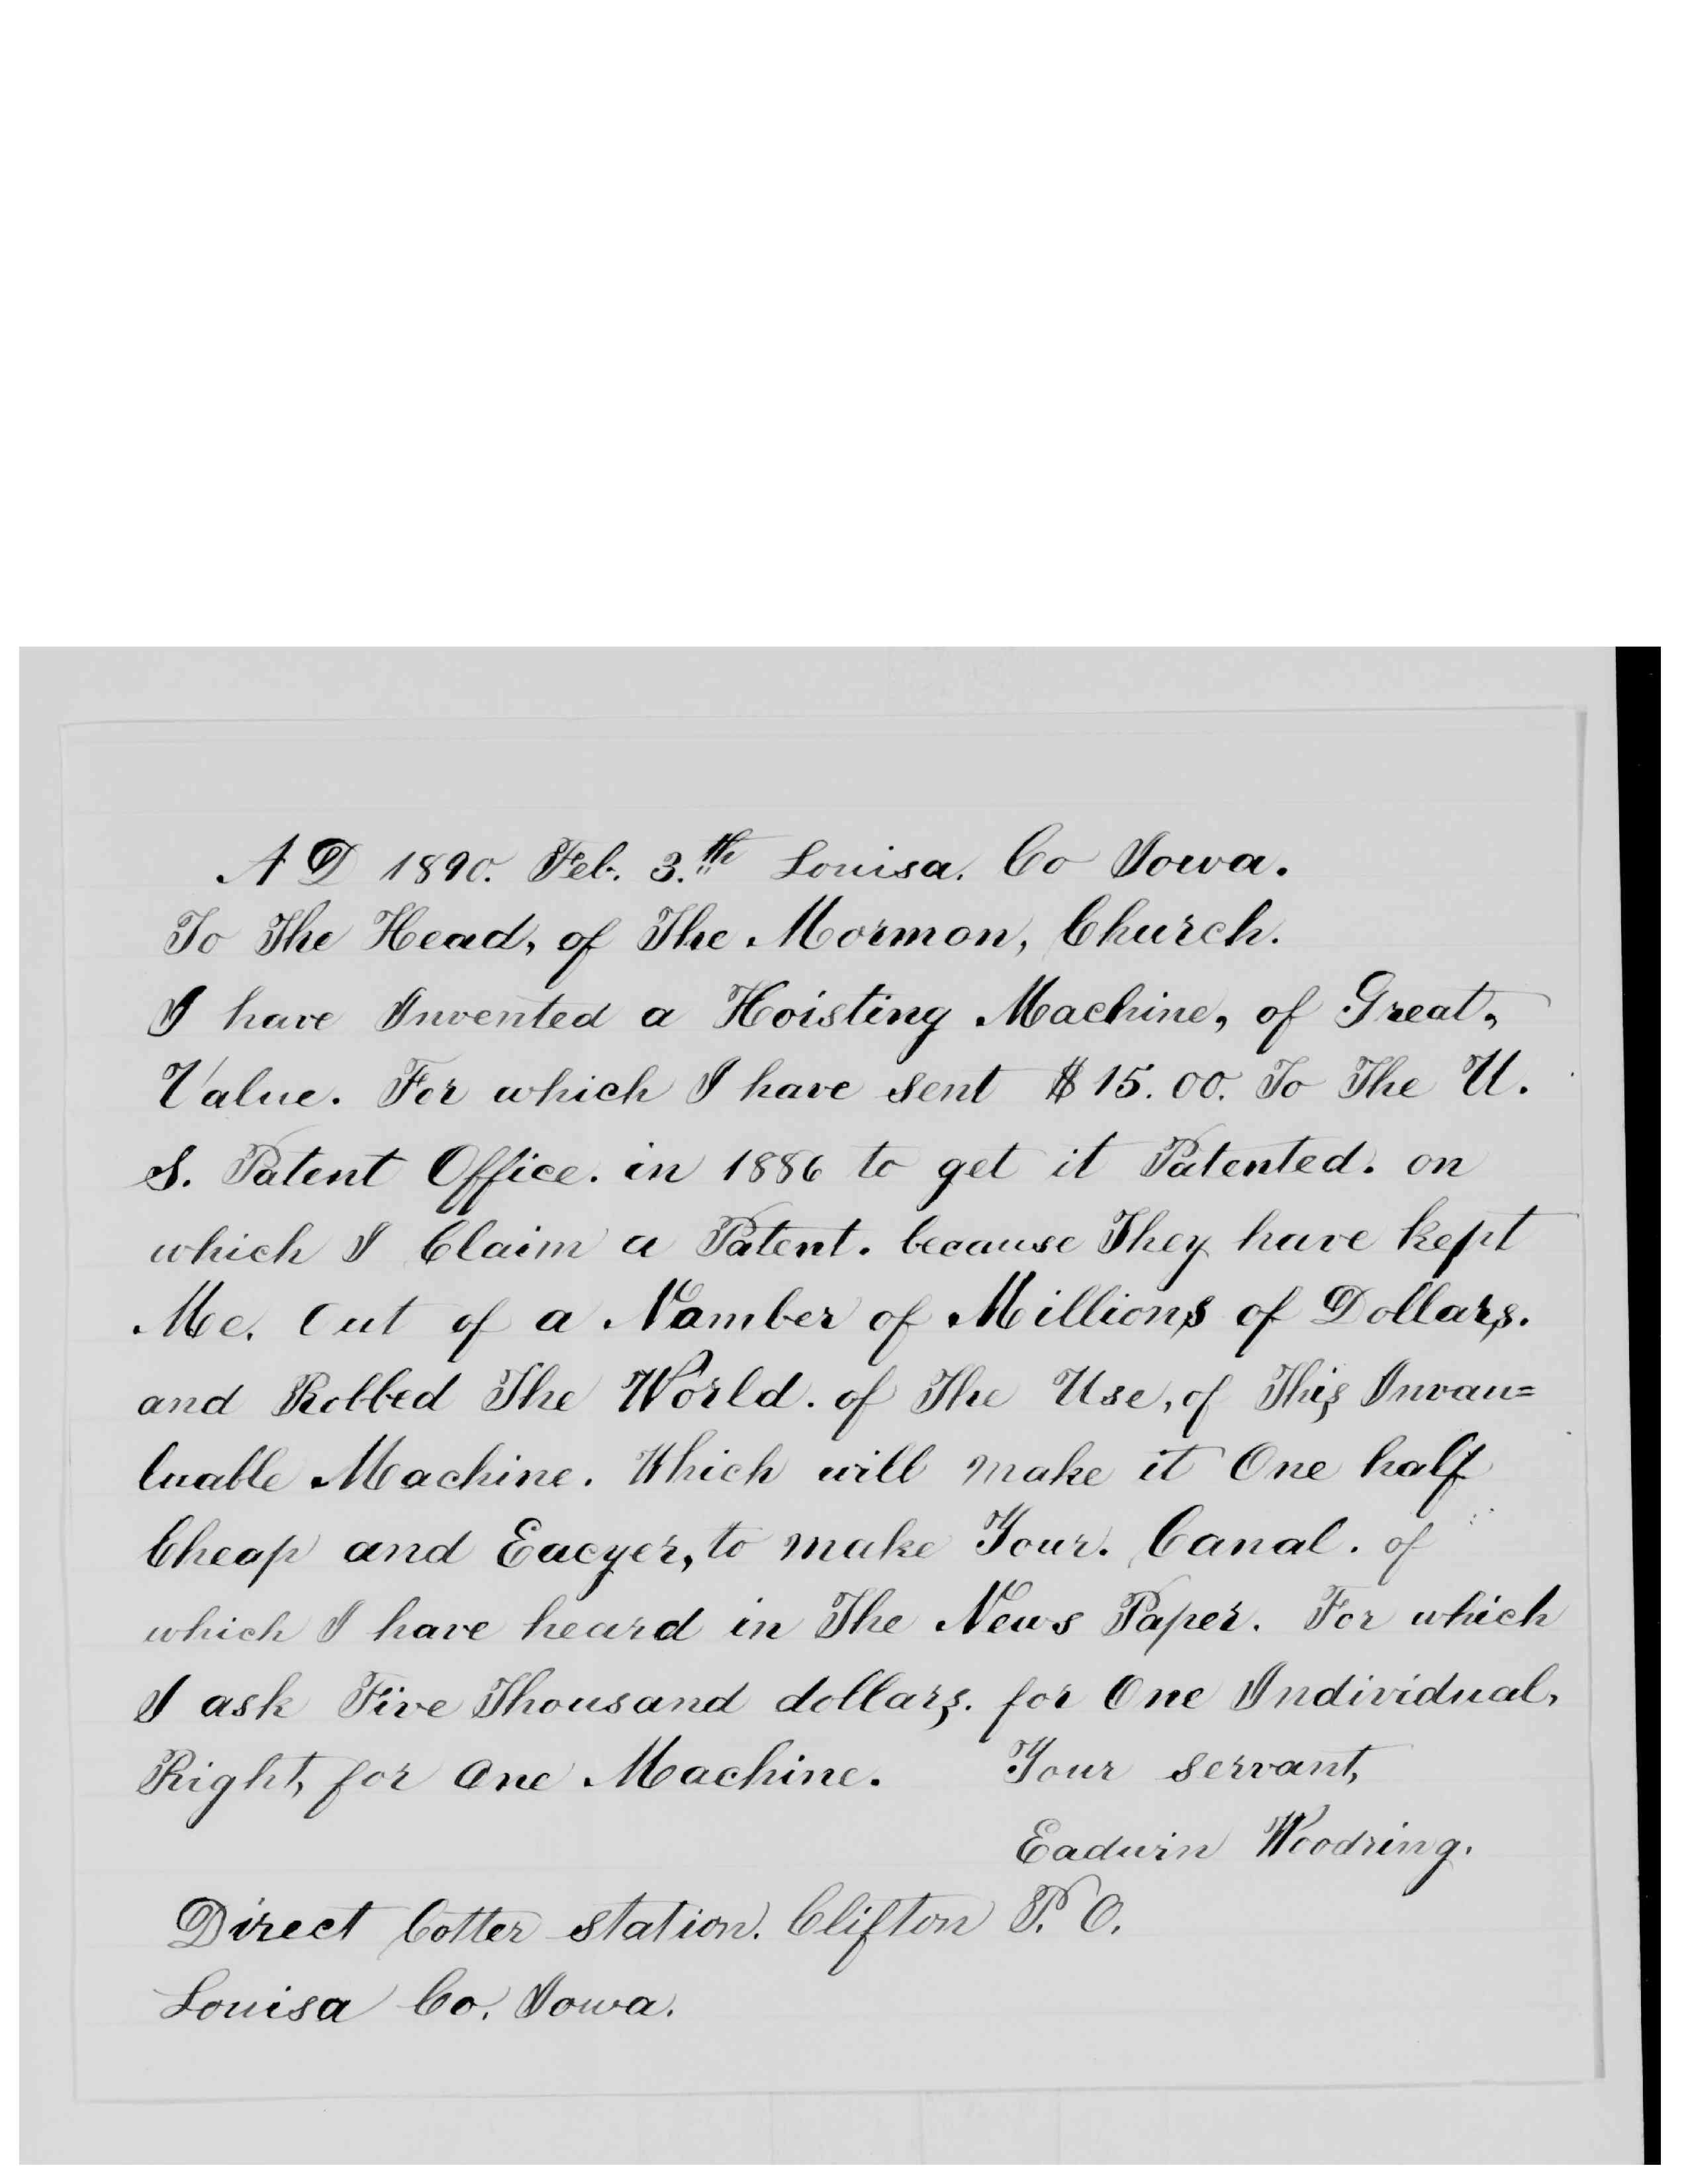 A D 1890. Feb. 3.th Louisa. Co Iowa.
To The Head, of The Mormon, Church.
I have Invented a Hoisting Machine, of Great,
Value. For which I have sent $15.00. To The U.
S. Patent Office. in 1886 to get it Patented. on
which I Claim a Patent. because They have kept
Me. Out of a Namber of Millions of Dollars.
and Robbed The World. of The Use, of This Invau=
luable Machine. Which will make it One half
Cheap and Eacyer, to make Your. Canal. of
which I have heard in The News Paper. For which
I ask Five Thousand dollars. for One Individual,
Right, for One Machine. Your servant,
Eadwin Woodring.
Direct Cotter station. Clifton P. O.
Louisa Co. Iowa.